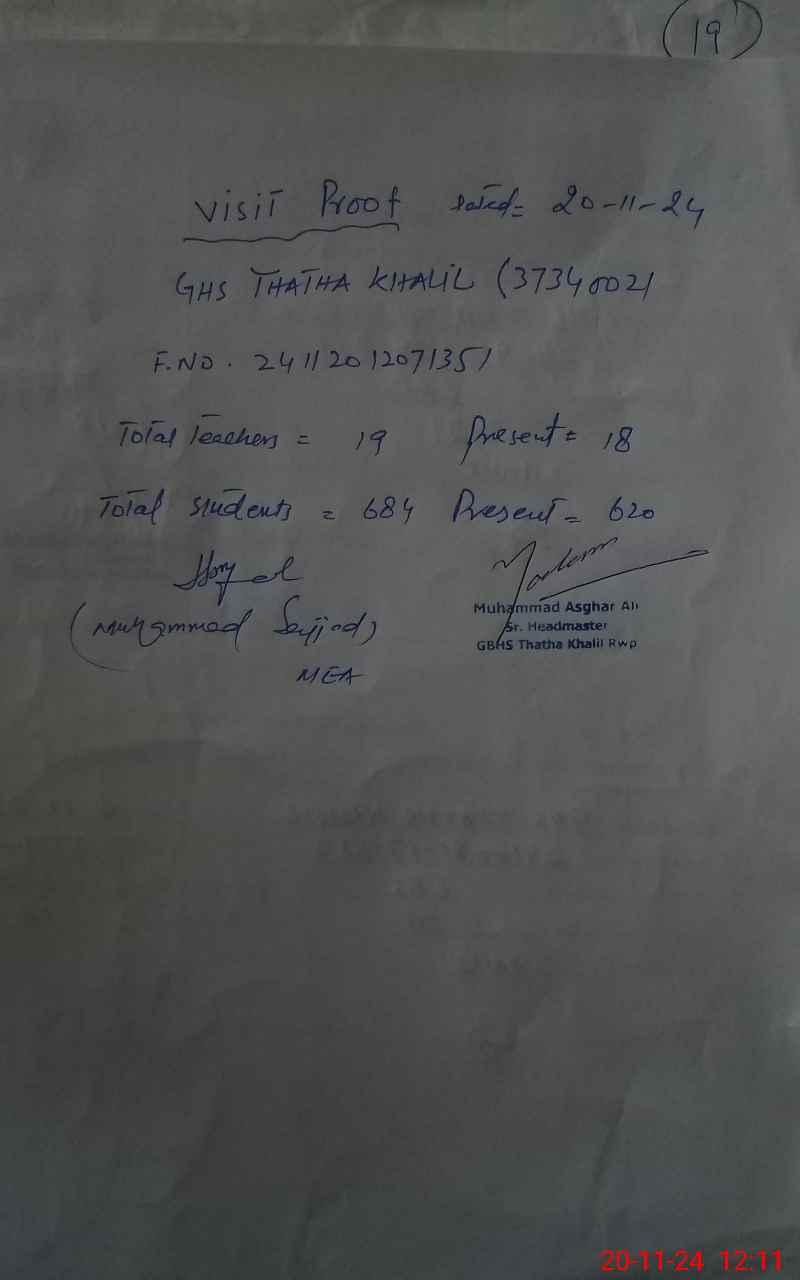 (19)
Visit Proof Dated= 20-11-24
GHS THATHA KHALIL (37340021
F.NO. 24112012071351
Total Teachers = 19 Present = 18
Total Students = 684 Present = 620
(Muhammad Sajjad)
MEA
Muhammad Asghar Ali
Sr. Headmaster
GBHS Thatha Khalil Rwp
20-11-24 12:11